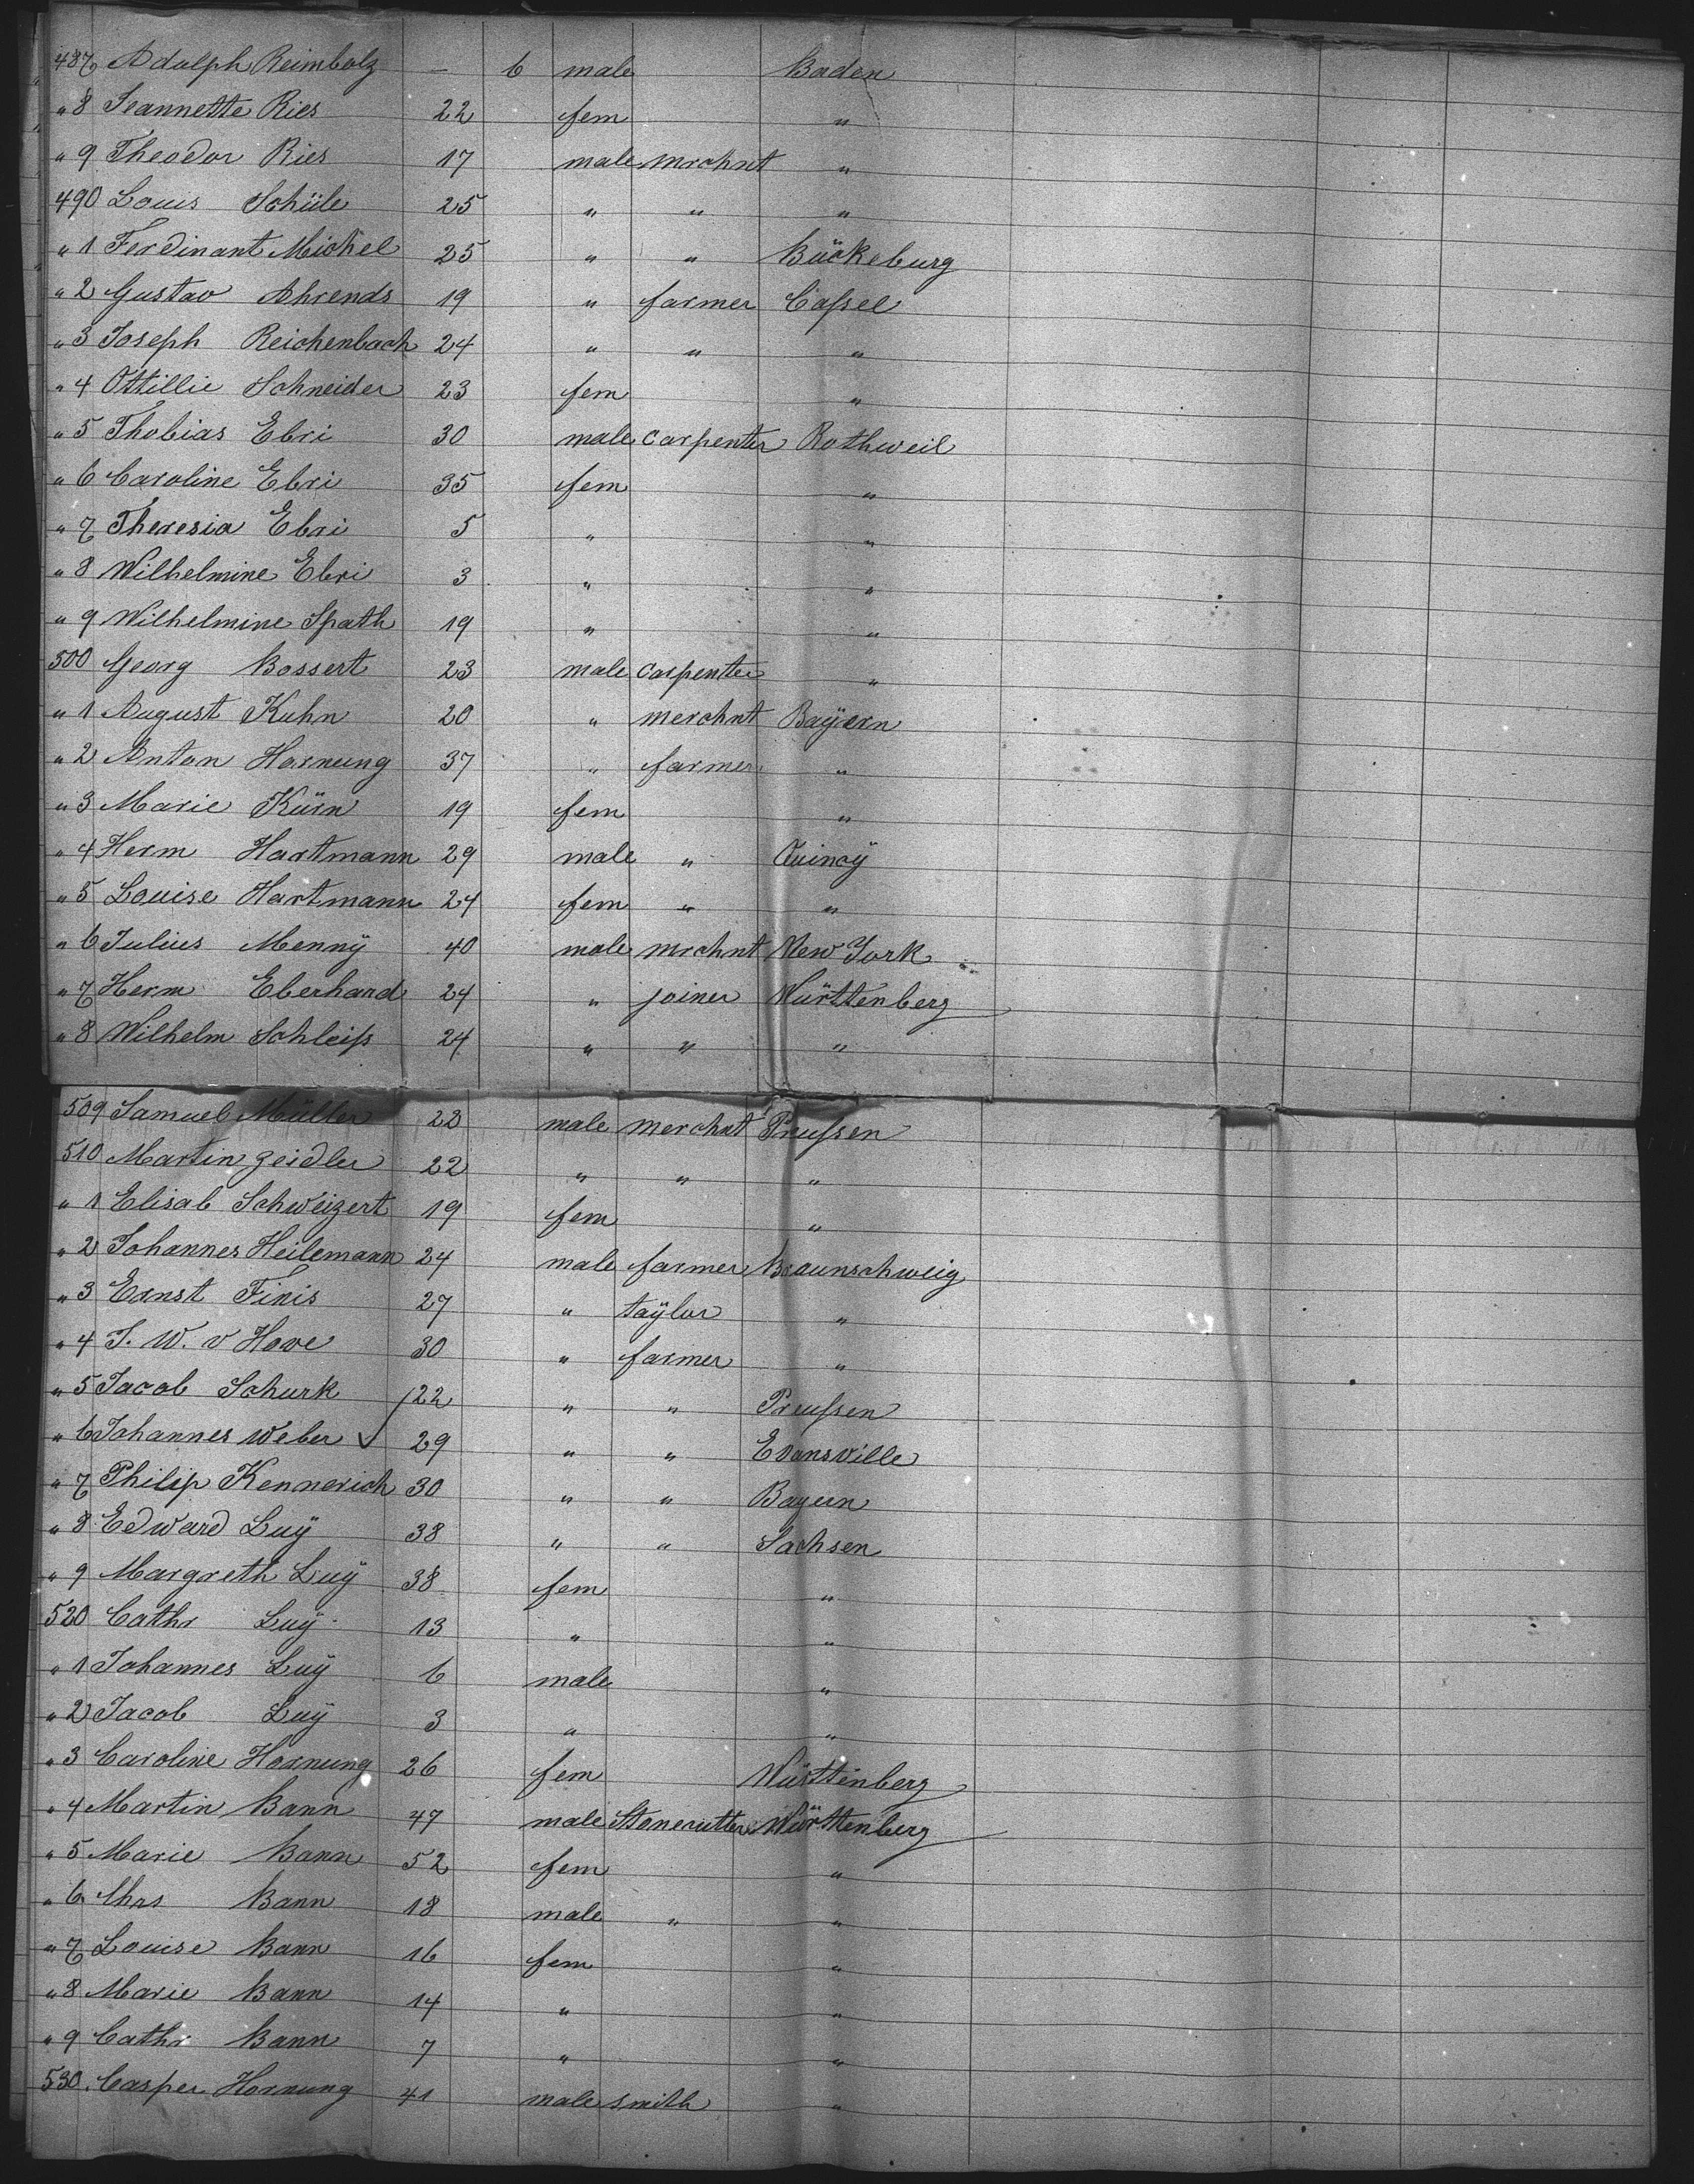 487 Adolph Reimbolz — 6 male Baden
" 8 Jeannette Ries 22 fem "
" 9 Theodor Ries 17 male mrchnt "
490 Louis Schüle 25 " " "
" 1 Ferdinant Michel 25 " " Bückeburg
" 2 Gustav Ahrends 19 " farmer Cassel
" 3 Joseph Reichenbach 24 " " "
" 4 Ottillie Schneider 23 fem "
" 5 Thobias Ebri 30 male carpenter Rothweil
" 6 Caroline Ebri 35 fem "
" 7 Theresia Ebri 5 " "
" 8 Wilhelmine Ebri 3 " "
" 9 Wilhelmine Spath 19 " "
500 Georg Bossert 23 male carpenter "
" 1 August Kuhn 20 " merchnt Bayern
" 2 Anton Hornung 37 " farmer "
" 3 Marie Kürn 19 fem "
" 4 Herm Hartmann 29 male " Quincy
" 5 Louise Hartmann 24 fem " "
" 6 Julius Menny 40 male mrchnt New York
" 7 Herm Eberhard 24 " joiner Württenberg
" 8 Wilhelm Schleiss 24 " " "
509 Samuel Müller 22 male merchnt Preussen
510 Martin Zeidler 22 " " "
" 1 Elisab Schweizert 19 fem "
" 2 Johannes Heilemann 24 male farmer Braunschweig
" 3 Ernst Finis 27 " taylor "
" 4 J. W. v Hove 30 " farmer "
" 5 Jacob Schurk 22 " " Preussen
" 6 Johannes Weber ✓ 29 " " Evansville
" 7 Philip Kennerich 30 " " Bayern
" 8 Edward Luÿ 38 " " Sachsen
" 9 Margreth Luÿ 38 fem "
520 Cathr Luÿ 13 " "
" 1 Johannes Luÿ 6 male "
" 2 Jacob Luÿ 3 " "
" 3 Caroline Hornung 26 fem Württenberg
" 4 Martin Bann 47 male Stonecutter Württenberg
" 5 Marie Bann 52 fem "
" 6 Chas Bann 18 male " "
" 7 Louise Bann 16 fem "
" 8 Marie Bann 14 " "
" 9 Cathr Bann 7 " "
530 Casper Hornung 41 male smith "